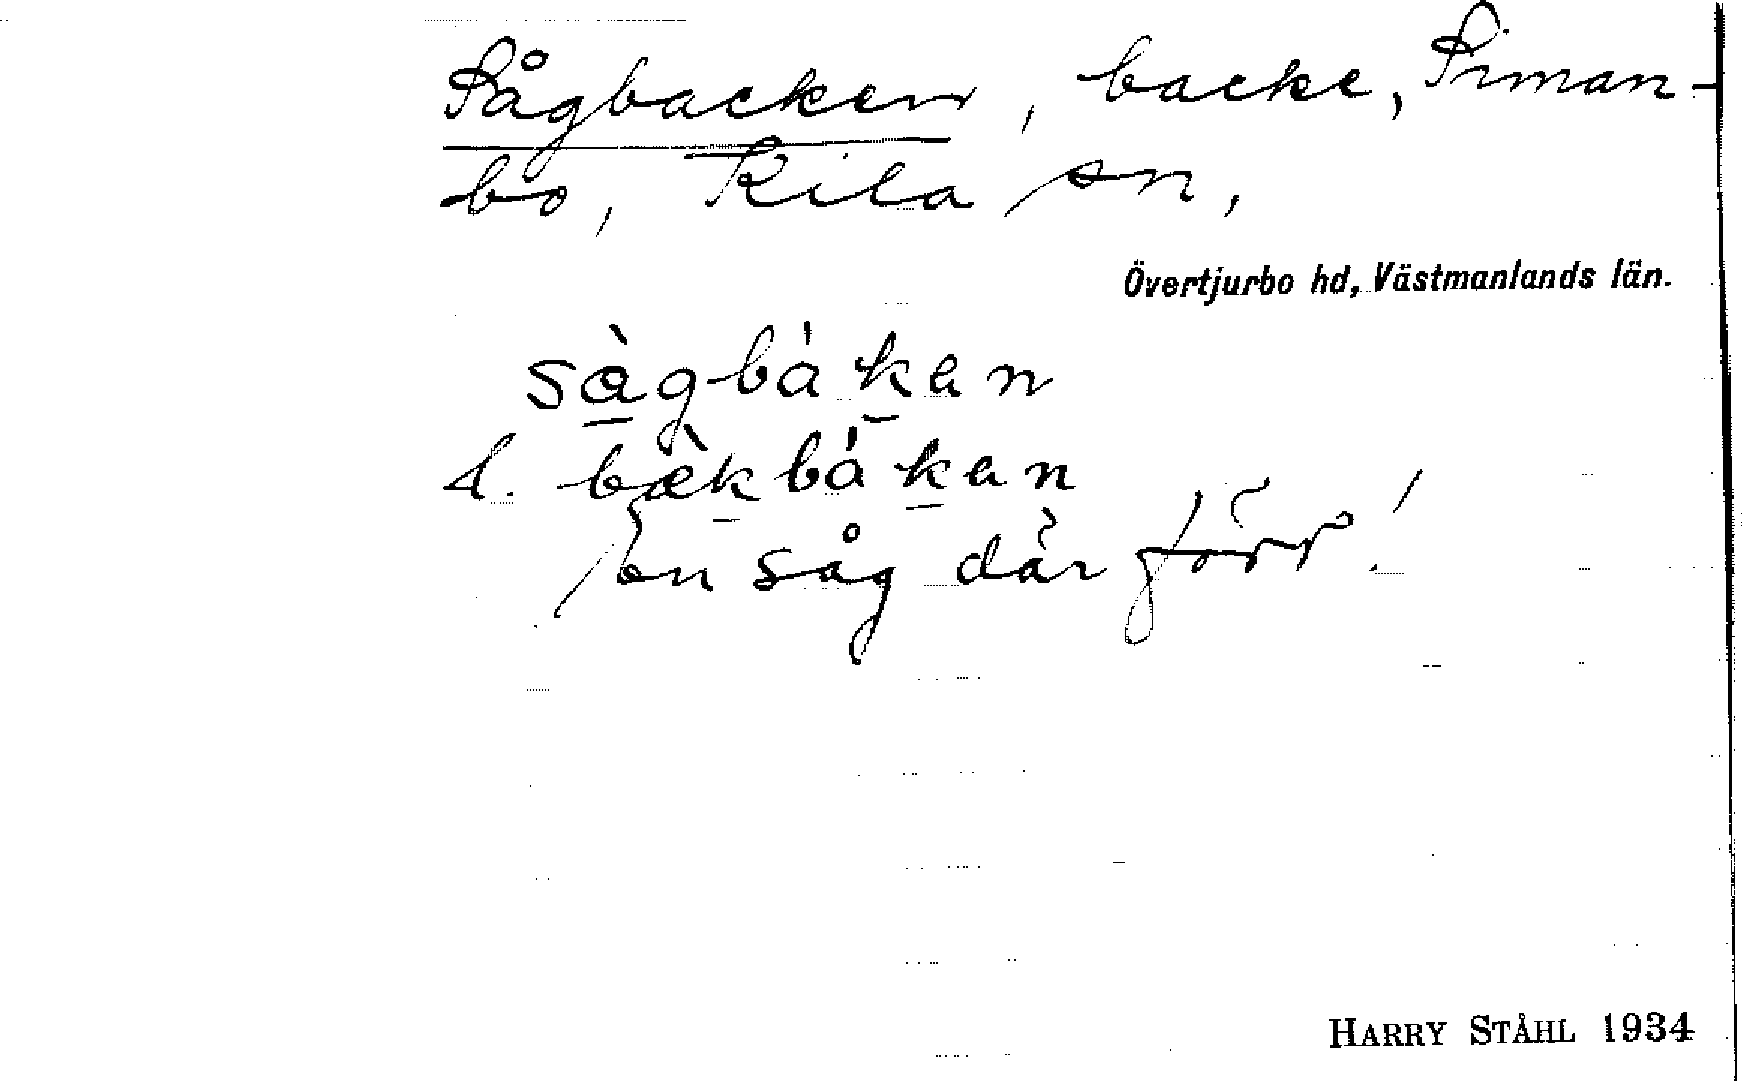 Sågbacken, backe, Siman-
bo, Kila sn,
Övertjurbo hd, Västmanlands län.
sàgbákan
l. bækbákan
en såg där förr!
HARRY STÅHL 1934